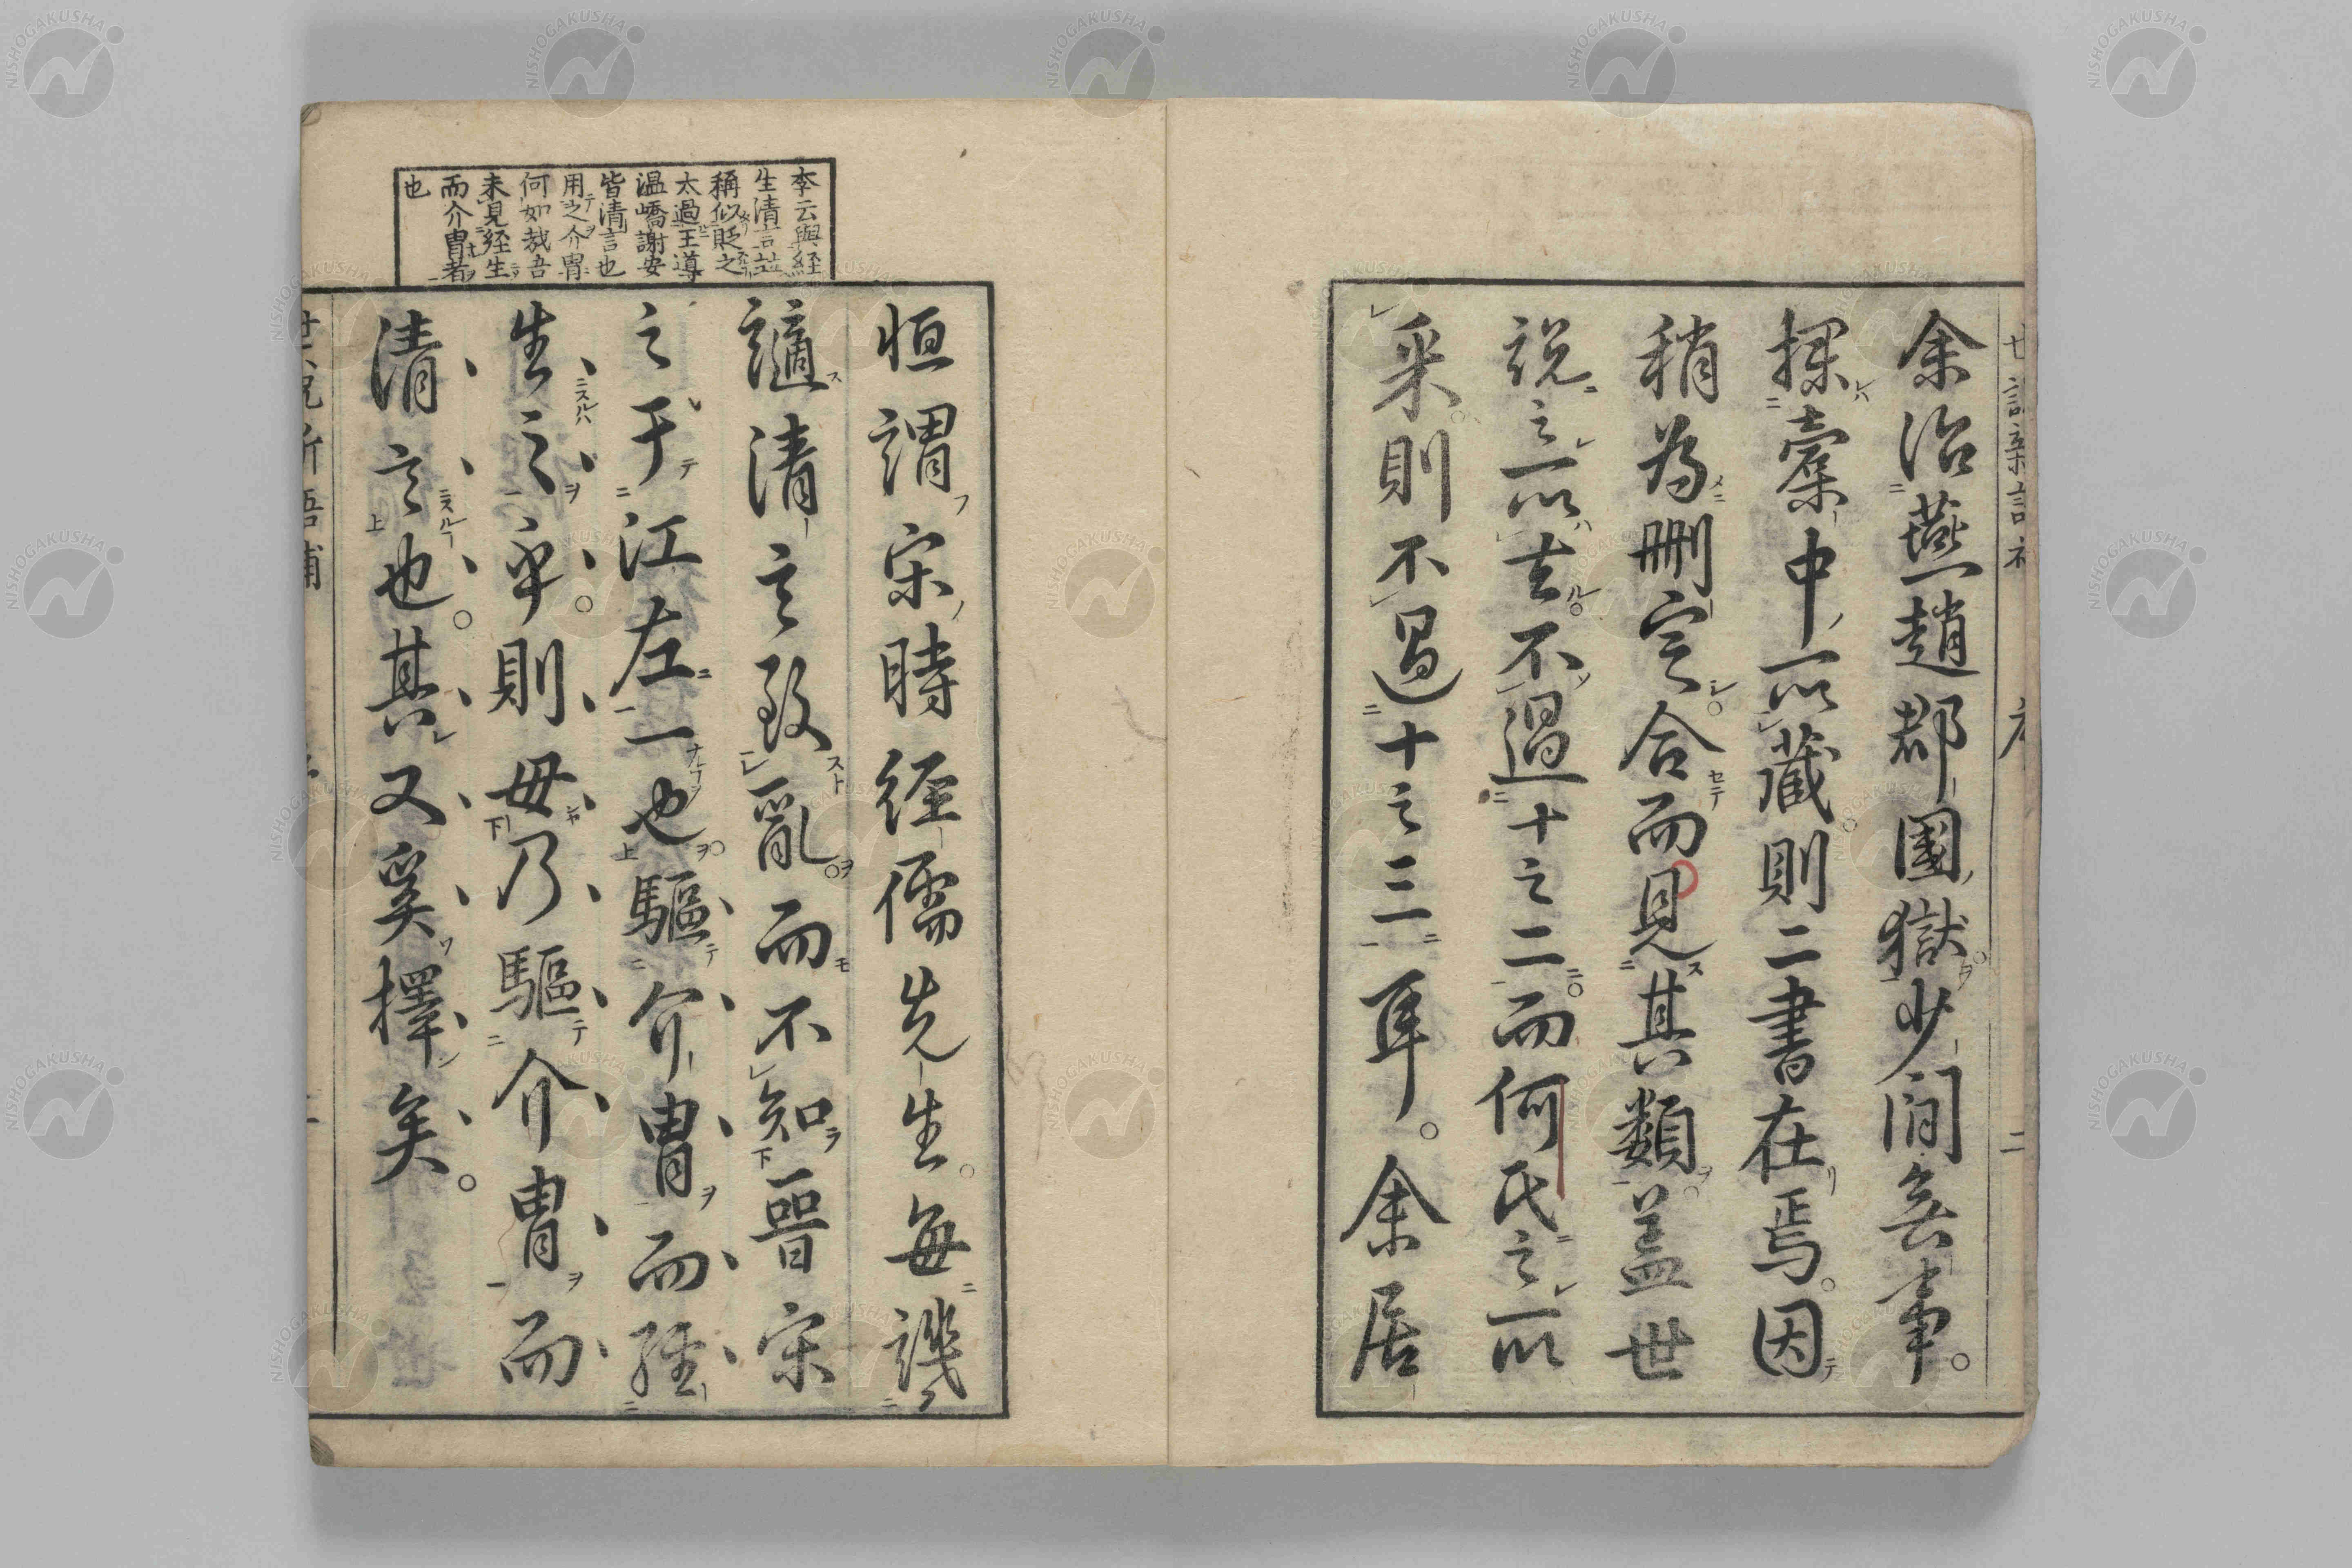 余治燕趙郡國獄少間無事。
探槖中所藏則二書在焉。因
稍為刪定。合而見其類。蓋世
說之所去。不過十之二。而何氏之所
采。則不過十之三耳。余居
李云與経
生清言並
稱似貶之
太過王導
温嶠謝安
皆清言也
用之介冑
何如哉吾
未見経生
而介冑者
也
恒謂宋時経儒先生。每譏
謫清言致亂。而不知晉宋
之于江左一也。驅介冑而経
生之乎。則毋乃驅介冑而
清言也。其又奚擇矣。
NISHOGAKUSHA